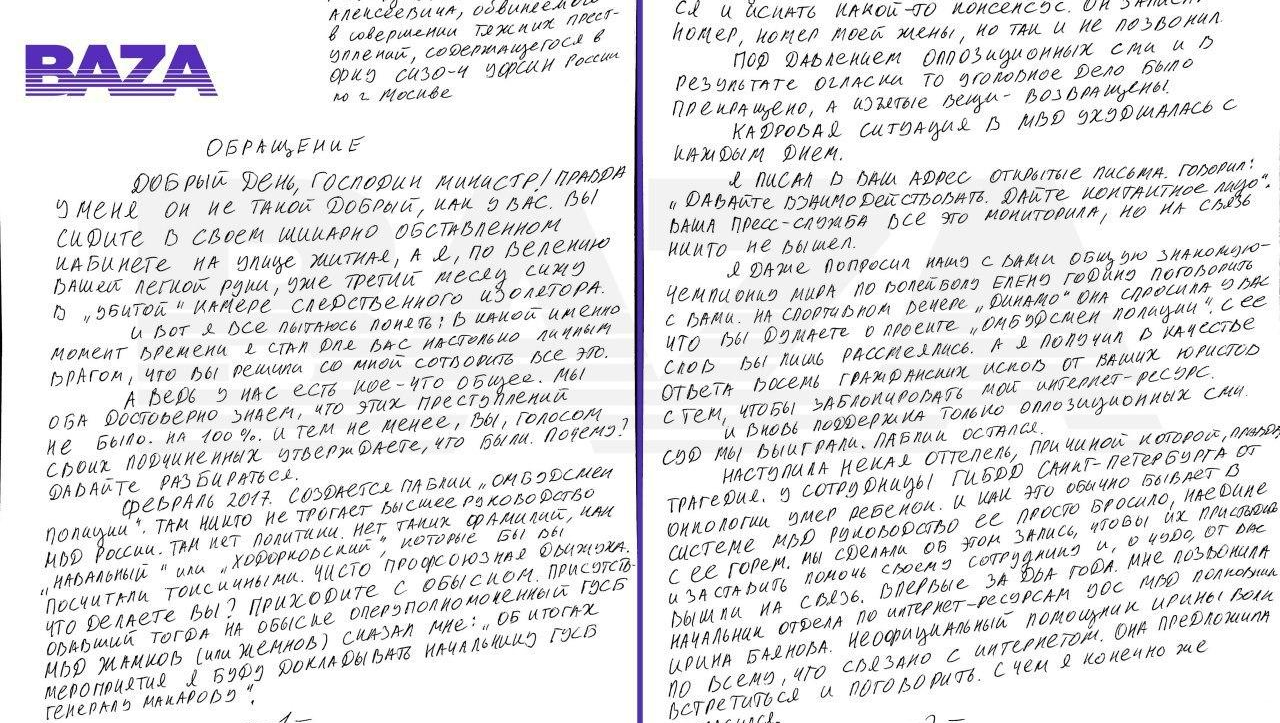 BAZA
АЛЕКСЕЕВИЧА, ОБВИНЯЕМОГО
В СОВЕРШЕНИИ ТЯЖКИХ ПРЕСТ-
УПЛЕНИЙ, СОДЕРЖАЩЕГОСЯ В
ФКУ СИЗО-4 УФСИН РОССИИ
ПО Г. МОСКВЕ
ОБРАЩЕНИЕ
ДОБРЫЙ ДЕНЬ, ГОСПОДИН МИНИСТР! ПРАВДА
У МЕНЯ ОН НЕ ТАКОЙ ДОБРЫЙ, КАК У ВАС. ВЫ
СИДИТЕ В СВОЕМ ШИКАРНО ОБСТАВЛЕННОМ
КАБИНЕТЕ НА УЛИЦЕ ЖИТНАЯ, А Я, ПО ВЕЛЕНИЮ
ВАШЕЙ ЛЕГКОЙ РУКИ, УЖЕ ТРЕТИЙ МЕСЯЦ СИЖУ
В „УБИТОЙ" КАМЕРЕ СЛЕДСТВЕННОГО ИЗОЛЯТОРА.
И ВОТ Я ВСЕ ПЫТАЮСЬ ПОНЯТЬ: В КАКОЙ ИМЕННО
МОМЕНТ ВРЕМЕНИ Я СТАЛ ДЛЯ ВАС НАСТОЛЬКО ЛИЧНЫМ
ВРАГОМ, ЧТО ВЫ РЕШИЛИ СО МНОЙ СОТВОРИТЬ ВСЕ ЭТО.
А ВЕДЬ У НАС ЕСТЬ КОЕ-ЧТО ОБЩЕЕ. МЫ
ОБА ДОСТОВЕРНО ЗНАЕМ, ЧТО ЭТИХ ПРЕСТУПЛЕНИЙ
НЕ БЫЛО. НА 100%. И ТЕМ НЕ МЕНЕЕ, ВЫ, ГОЛОСОМ
СВОИХ ПОДЧИНЕННЫХ УТВЕРЖДАЕТЕ, ЧТО БЫЛИ. ПОЧЕМУ?
ДАВАЙТЕ РАЗБИРАТЬСЯ.
ФЕВРАЛЬ 2017. СОЗДАЕТСЯ ПАБЛИК „ОМБУДСМЕН
ПОЛИЦИИ". ТАМ НИКТО НЕ ТРОГАЕТ ВЫСШЕЕ РУКОВОДСТВО
МВД РОССИИ. ТАМ НЕТ ПОЛИТИКИ. НЕТ ТАКИХ ФАМИЛИЙ, КАК
„НАВАЛЬНЫЙ" ИЛИ „ХОДОРКОВСКИЙ", КОТОРЫЕ БЫ ВЫ
ПОСЧИТАЛИ ТОКСИЧНЫМИ. ЧИСТО ПРОФСОЮЗНАЯ ДВИЖУХА.
ЧТО ДЕЛАЕТЕ ВЫ? ПРИХОДИТЕ С ОБЫСКОМ. ПРИСУТСТВ-
ОВАВШИЙ ТОГДА НА ОБЫСКЕ ОПЕРУПОЛНОМОЧЕННЫЙ ГУСБ
МВД ЖАМКОВ (ИЛИ ЖЕМНОВ) СКАЗАЛ МНЕ: „ОБ ИТОГАХ
МЕРОПРИЯТИЯ Я БУДУ ДОКЛАДЫВАТЬ НАЧАЛЬНИКУ ГУСБ
ГЕНЕРАЛУ МАКАРОВУ".
СЯ И ИСКАТЬ КАКОЙ-ТО КОНСЕНСУС. ОН ЗАПИСАЛ
НОМЕР, НОМЕР МОЕЙ ЖЕНЫ, НО ТАК И НЕ ПОЗВОНИЛ.
ПОД ДАВЛЕНИЕМ ОППОЗИЦИОННЫХ СМИ И В
РЕЗУЛЬТАТЕ ОГЛАСКИ ТО УГОЛОВНОЕ ДЕЛО БЫЛО
ПРЕКРАЩЕНО, А ИЗЪЯТЫЕ ВЕЩИ - ВОЗВРАЩЕНЫ.
КАДРОВАЯ СИТУАЦИЯ В МВД УХУДШАЛАСЬ С
КАЖДЫМ ДНЕМ.
Я ПИСАЛ В ВАШ АДРЕС ОТКРЫТЫЕ ПИСЬМА. ГОВОРИЛ:
„ДАВАЙТЕ ВЗАИМОДЕЙСТВОВАТЬ. ДАЙТЕ КОНТАКТНОЕ ЛИЦО".
ВАША ПРЕСС-СЛУЖБА ВСЕ ЭТО МОНИТОРИЛА, НО НА СВЯЗЬ
НИКТО НЕ ВЫШЕЛ.
Я ДАЖЕ ПОПРОСИЛ НАШУ С ВАМИ ОБЩУЮ ЗНАКОМУЮ-
ЧЕМПИОНКУ МИРА ПО ВОЛЕЙБОЛУ ЕЛЕНУ ГОДИНУ ПОГОВОРИТЬ
С ВАМИ. НА СПОРТИВНОМ ВЕЧЕРЕ „ДИНАМО" ОНА СПРОСИЛА У ВАС
ЧТО ВЫ ДУМАЕТЕ О ПРОЕКТЕ „ОМБУДСМЕН ПОЛИЦИИ". С ЕЕ
СЛОВ ВЫ ЛИШЬ РАССМЕЯЛИСЬ. А Я ПОЛУЧИЛ В КАЧЕСТВЕ
ОТВЕТА ВОСЕМЬ ГРАЖДАНСКИХ ИСКОВ ОТ ВАШИХ ЮРИСТОВ
С ТЕМ, ЧТОБЫ ЗАБЛОКИРОВАТЬ МОЙ ИНТЕРНЕТ-РЕСУРС.
И ВНОВЬ ПОДДЕРЖКА ТОЛЬКО ОППОЗИЦИОННЫХ СМИ.
СУД МЫ ВЫИГРАЛИ. ПАБЛИК ОСТАЛСЯ.
НАСТУПИЛА НЕКАЯ ОТТЕПЕЛЬ, ПРИЧИНОЙ КОТОРОЙ, ПРАВДА,
ТРАГЕДИЯ. У СОТРУДНИЦЫ ГИБДД САНКТ-ПЕТЕРБУРГА ОТ
ОНКОЛОГИИ УМЕР РЕБЕНОК. И КАК ЭТО ОБЫЧНО БЫВАЕТ В
СИСТЕМЕ МВД РУКОВОДСТВО ЕЕ ПРОСТО БРОСИЛО, НАЕДИНЕ
С ЕЕ ГОРЕМ. МЫ СДЕЛАЛИ ОБ ЭТОМ ЗАПИСЬ, ЧТОБЫ ИХ ПРИСТЫДИТЬ
И ЗАСТАВИТЬ ПОМОЧЬ СВОЕМУ СОТРУДНИКУ И, О ЧУДО, ОТ ВАС
ВЫШЛИ НА СВЯЗЬ. ВПЕРВЫЕ ЗА ДВА ГОДА. МНЕ ПОЗВОНИЛА
НАЧАЛЬНИК ОТДЕЛА ПО ИНТЕРНЕТ-РЕСУРСАМ УОС МВД ПОЛКОВНИК
ИРИНА БАЯНОВА. НЕОФИЦИАЛЬНЫЙ ПОМОЩНИК ИРИНЫ ВОЛК
ПО ВСЕМУ, ЧТО СВЯЗАНО С ИНТЕРНЕТОМ. ОНА ПРЕДЛОЖИЛА
ВСТРЕТИТЬСЯ И ПОГОВОРИТЬ. С ЧЕМ Я КОНЕЧНО ЖЕ